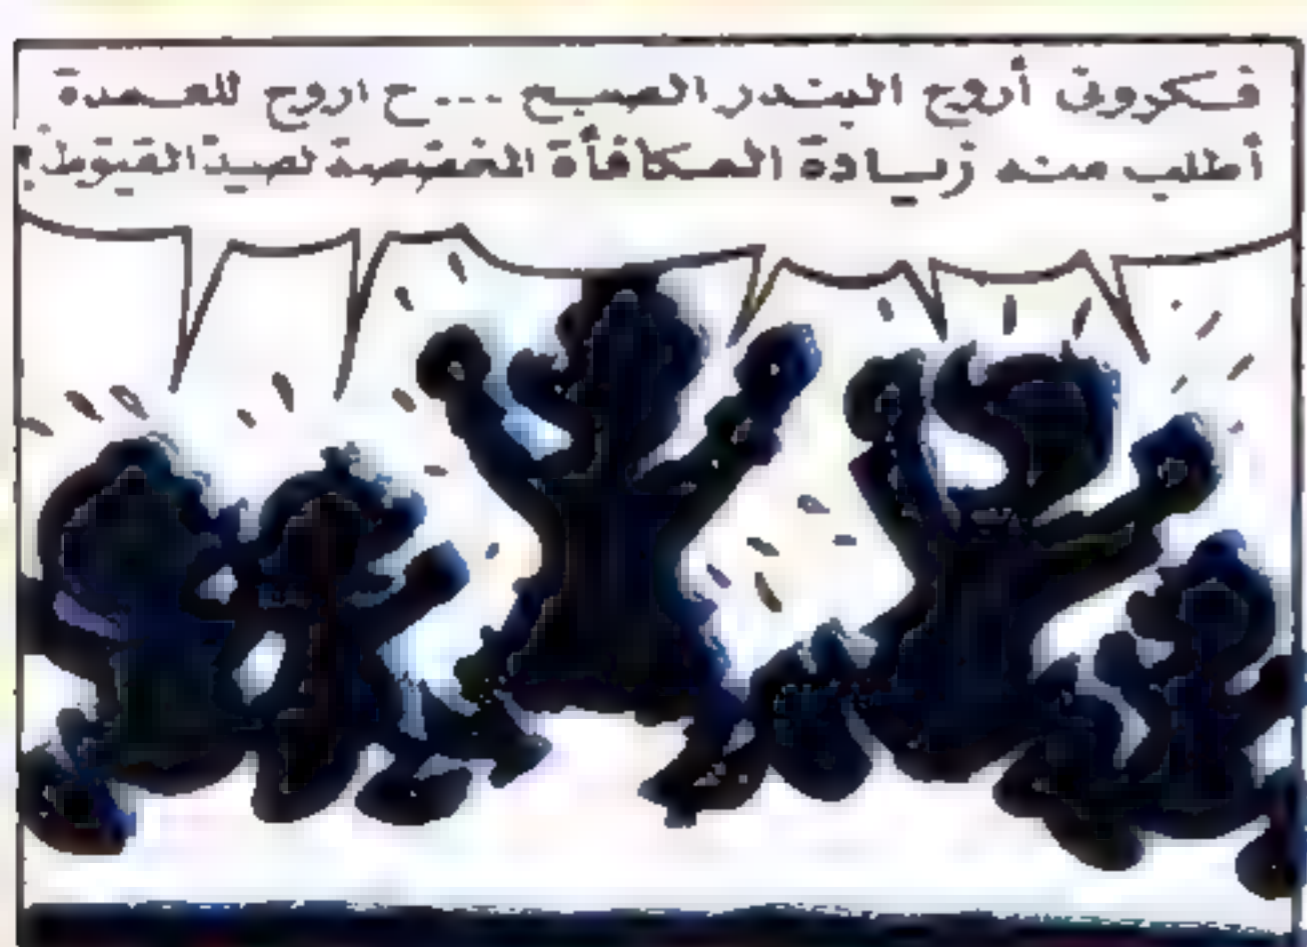 فكرونى أروح البندر الصبح ... ح اروح للعمدة
أطلب منه زيادة المكافأة المخصصة لصيد القيوط!